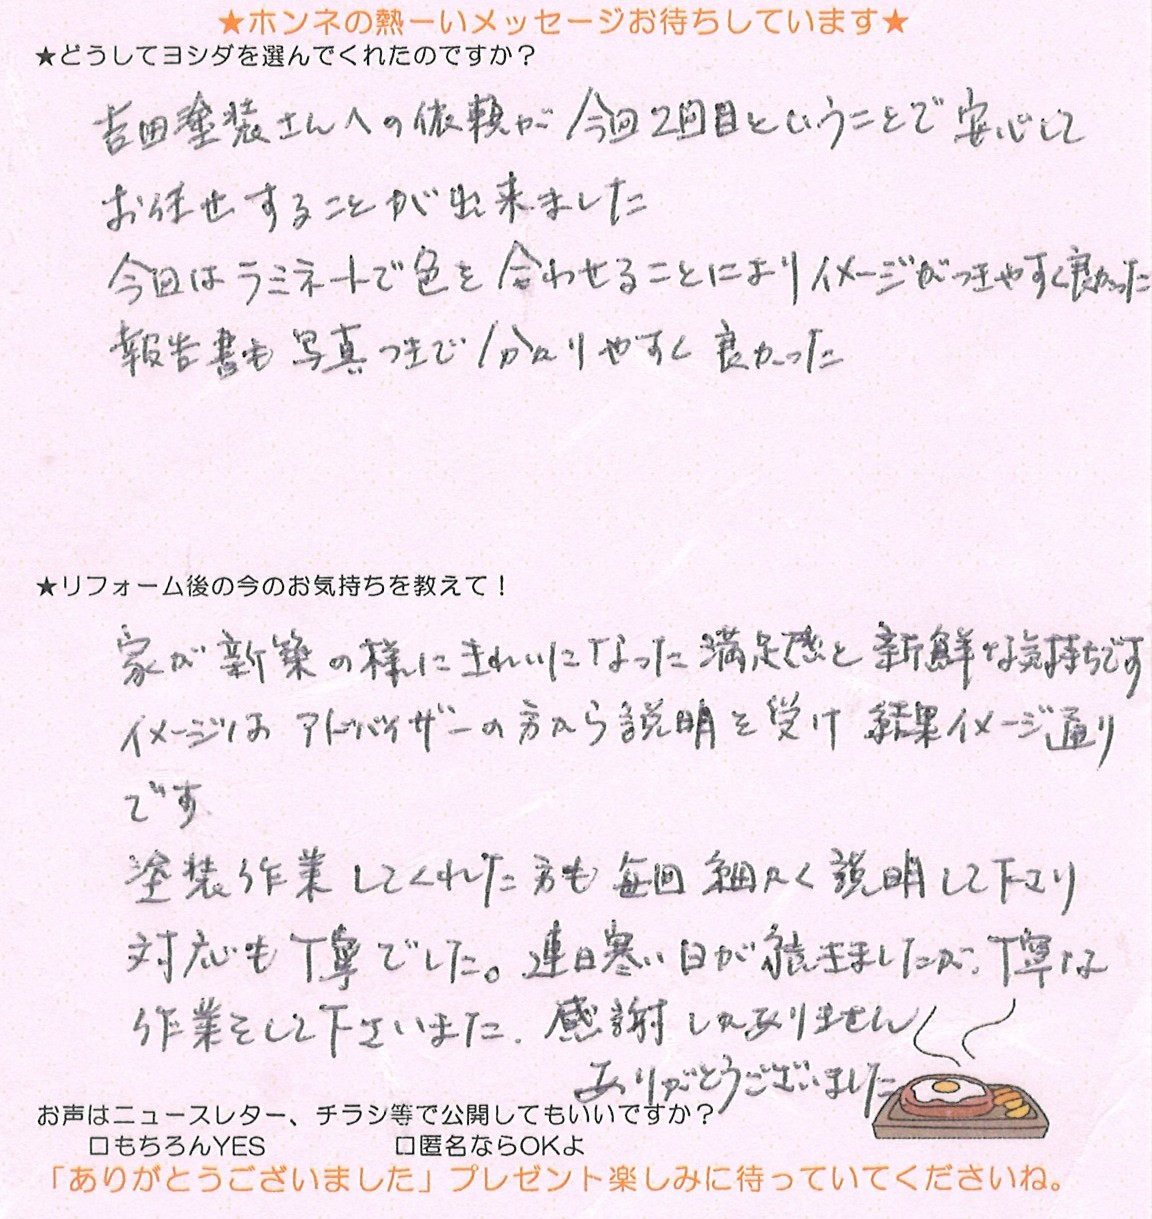 ★ホンネの熱ーいメッセージお待ちしています★
★どうしてヨシダを選んでくれたのですか？
吉田塗装さんへの依頼が今回2回目ということで安心して
お任せすることが出来ました
今回はラミネートで色を合わせることによりイメージがつきやすく良かった
報告書も写真つきで分かりやすく良かった
★リフォーム後の今のお気持ちを教えて！
家が新築の様にきれいになった満足感と新鮮な気持ちです
イメージはアドバイザーの方から説明を受け結果イメージ通り
です
塗装作業してくれた方も毎回細かく説明して下さり
対応も丁寧でした。連日寒い日が続きましたが、丁寧な
作業をして下さいました。感謝しかありません
ありがとうございました
お声はニュースレター、チラシ等で公開してもいいですか？
□もちろんYES □匿名ならOKよ
「ありがとうございました」プレゼント楽しみに待っていてくださいね。